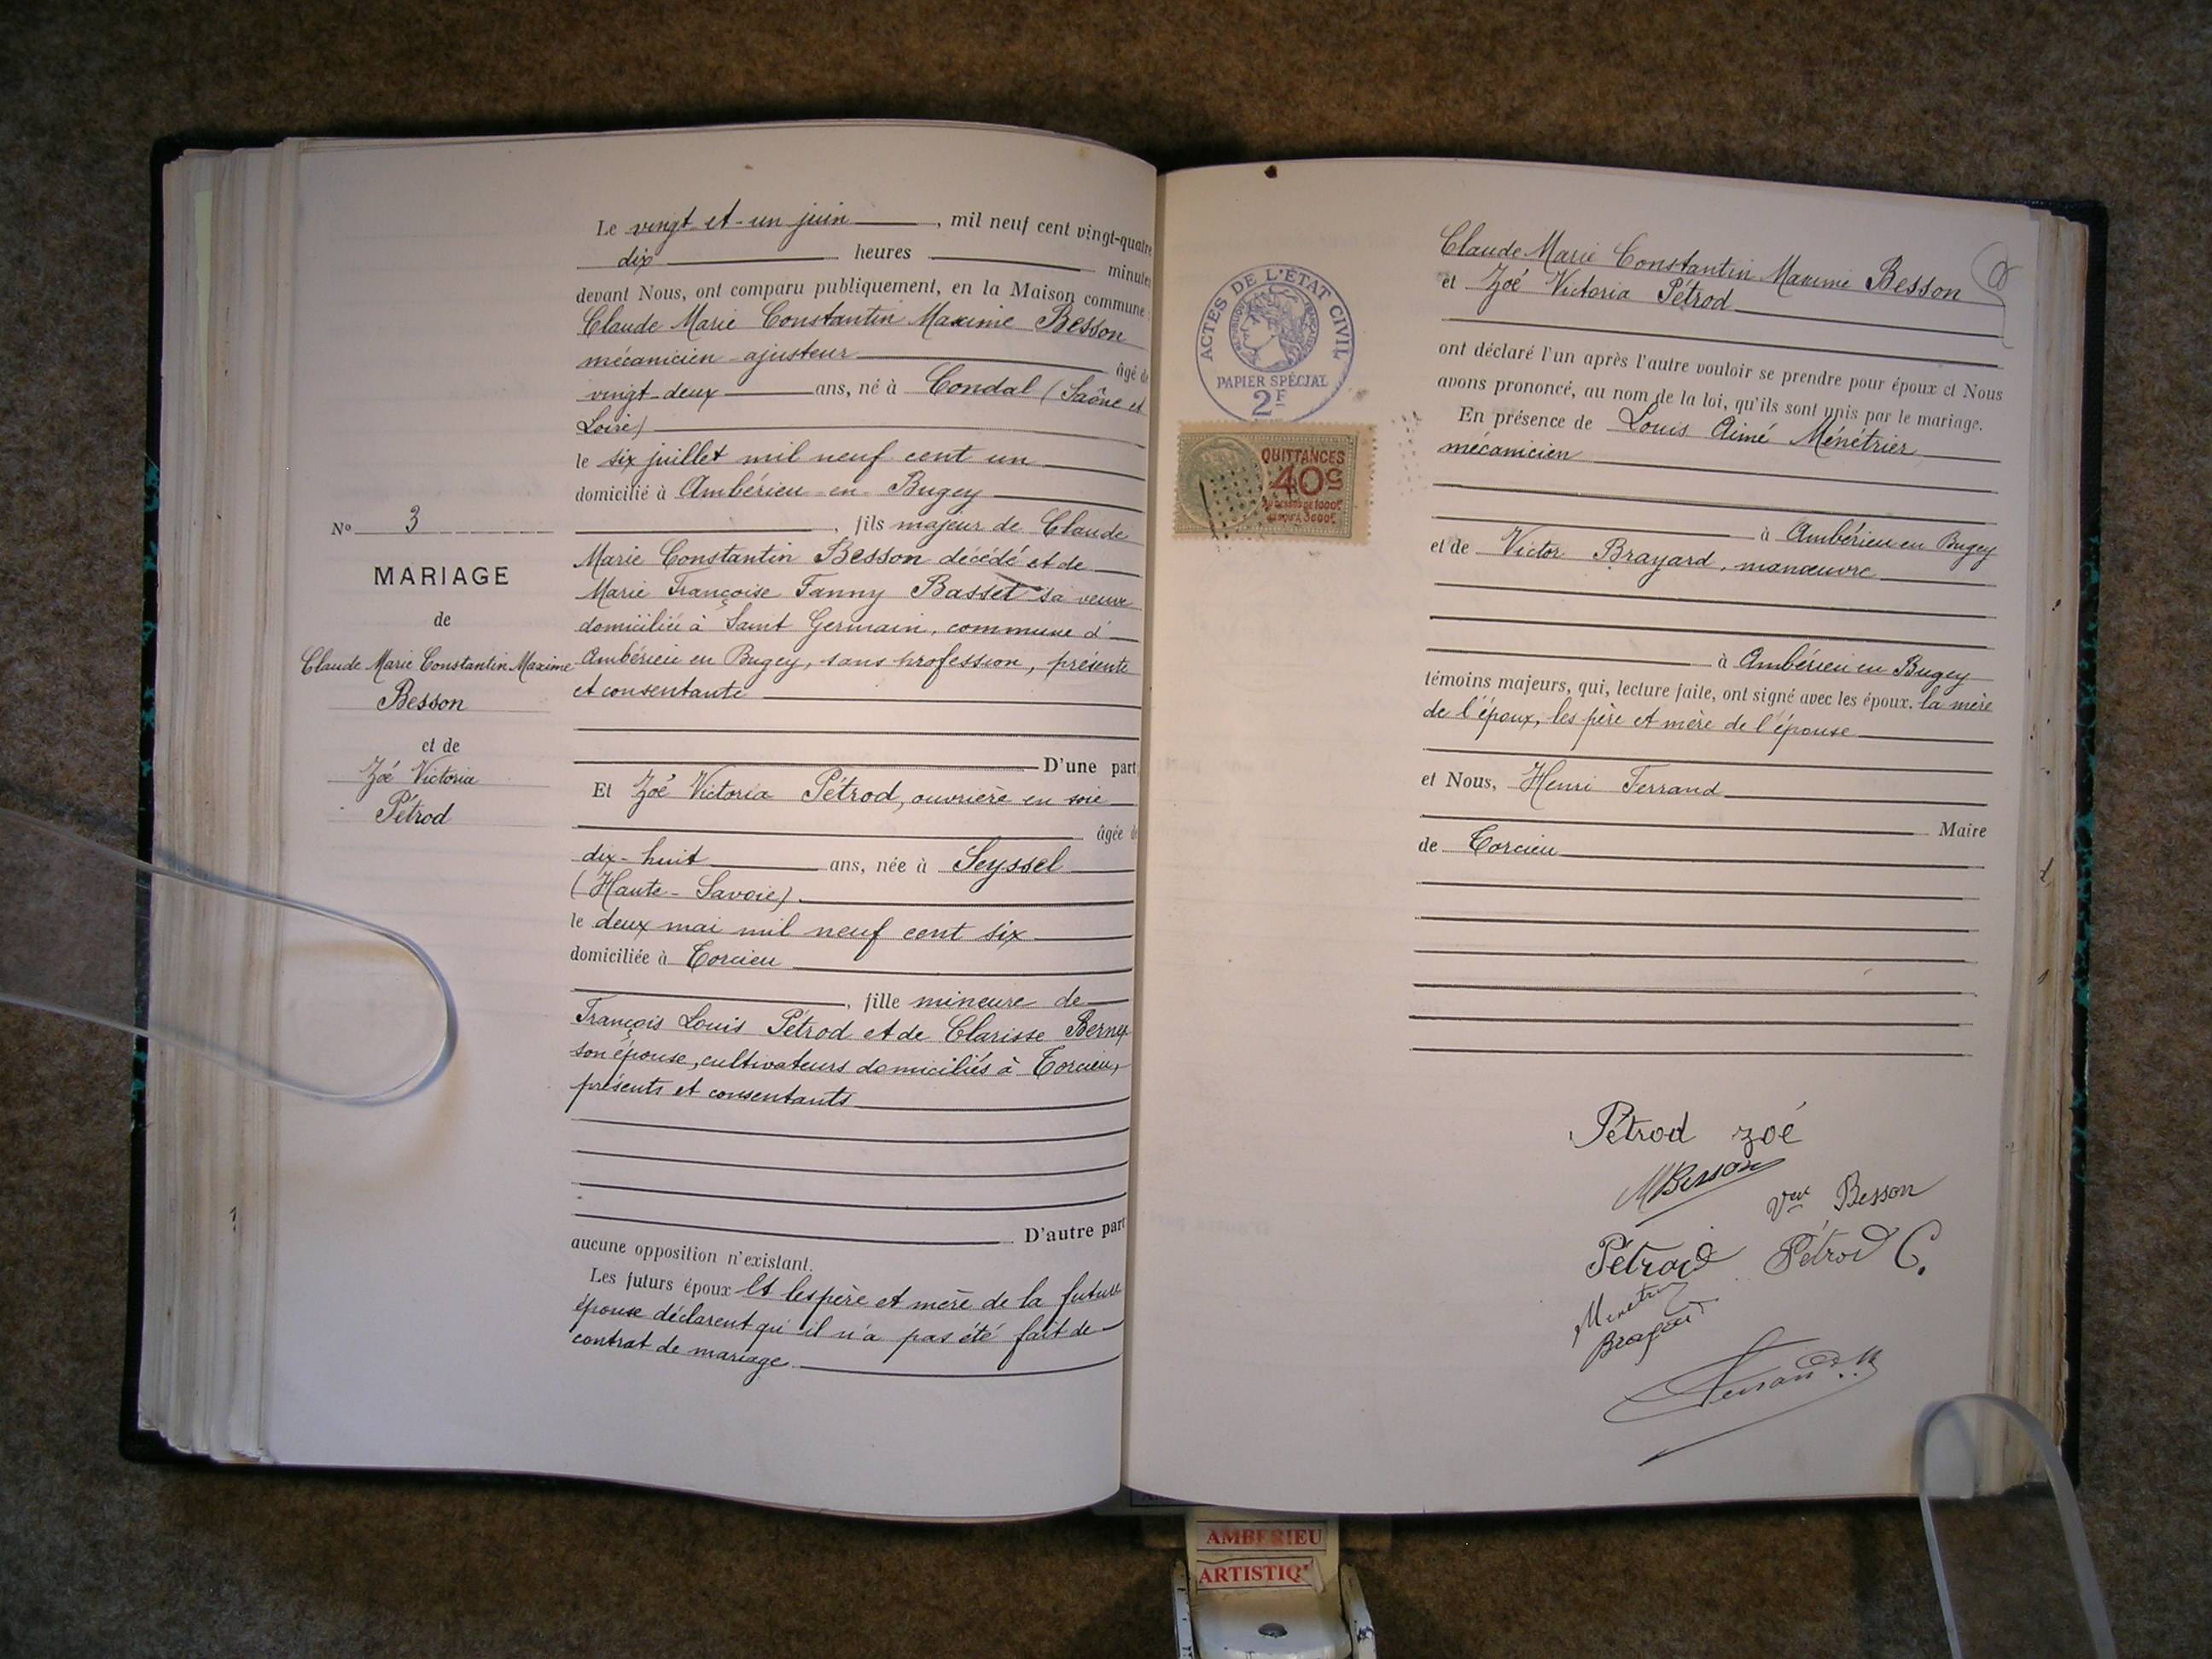 Le vingt et un juin, mil neuf cent vingt-quatre
dix heures minutes
devant Nous, ont comparu publiquement, en la Maison commune :
Claude Marie Constantin Maxime Besson
mécanicien-ajusteur âgé de
vingt-deux ans, né à Condal (Saône et
Loire)
le six juillet mil neuf cent un
domicilié à Ambérieu-en-Bugey
, fils majeur de Claude
Marie Constantin Besson décédé et de
Marie Françoise Fanny Basset sa veuve
domiciliée à Saint Germain, commune d'
Ambérieu en Bugey, sans profession, présente
et consentante
D'une part
Et Zoé Victoria Pétrod, ouvrière en soie
âgée de
dix-huit ans, née à Seyssel
(Haute-Savoie)
le deux mai mil neuf cent six
domiciliée à Torcieu
, fille mineure de
François Louis Pétrod et de Clarisse Bernex
son épouse, cultivateurs domiciliés à Torcieu,
présents et consentants
D'autre part
aucune opposition n'existant.
Les futurs époux et les père et mère de la future
épouse déclarent qu'il n'a pas été fait de
contrat de mariage
N° 3
MARIAGE
de
Claude Marie Constantin Maxime
Besson
et de
Zoé Victoria
Pétrod
ACTES DE L'ÉTAT CIVIL
PAPIER SPÉCIAL
2F
QUITTANCES
40c
Claude Marie Constantin Maxime Besson
et Zoé Victoria Pétrod
ont déclaré l'un après l'autre vouloir se prendre pour époux et Nous
avons prononcé, au nom de la loi, qu'ils sont unis par le mariage.
En présence de Louis Aimé Ménétrier
mécanicien
à Ambérieu en Bugey
et de Victor Brayard, manœuvre
à Ambérieu en Bugey
témoins majeurs, qui, lecture faite, ont signé avec les époux. la mère
de l'époux, les père et mère de l'épouse
et Nous, Henri Ferrand
Maire
de Torcieu
Pétrod zoé
MBesson
Vve Besson
Pétrod
Pétrod C.
Ferrand
AMBERIEU
ARTISTIQ'